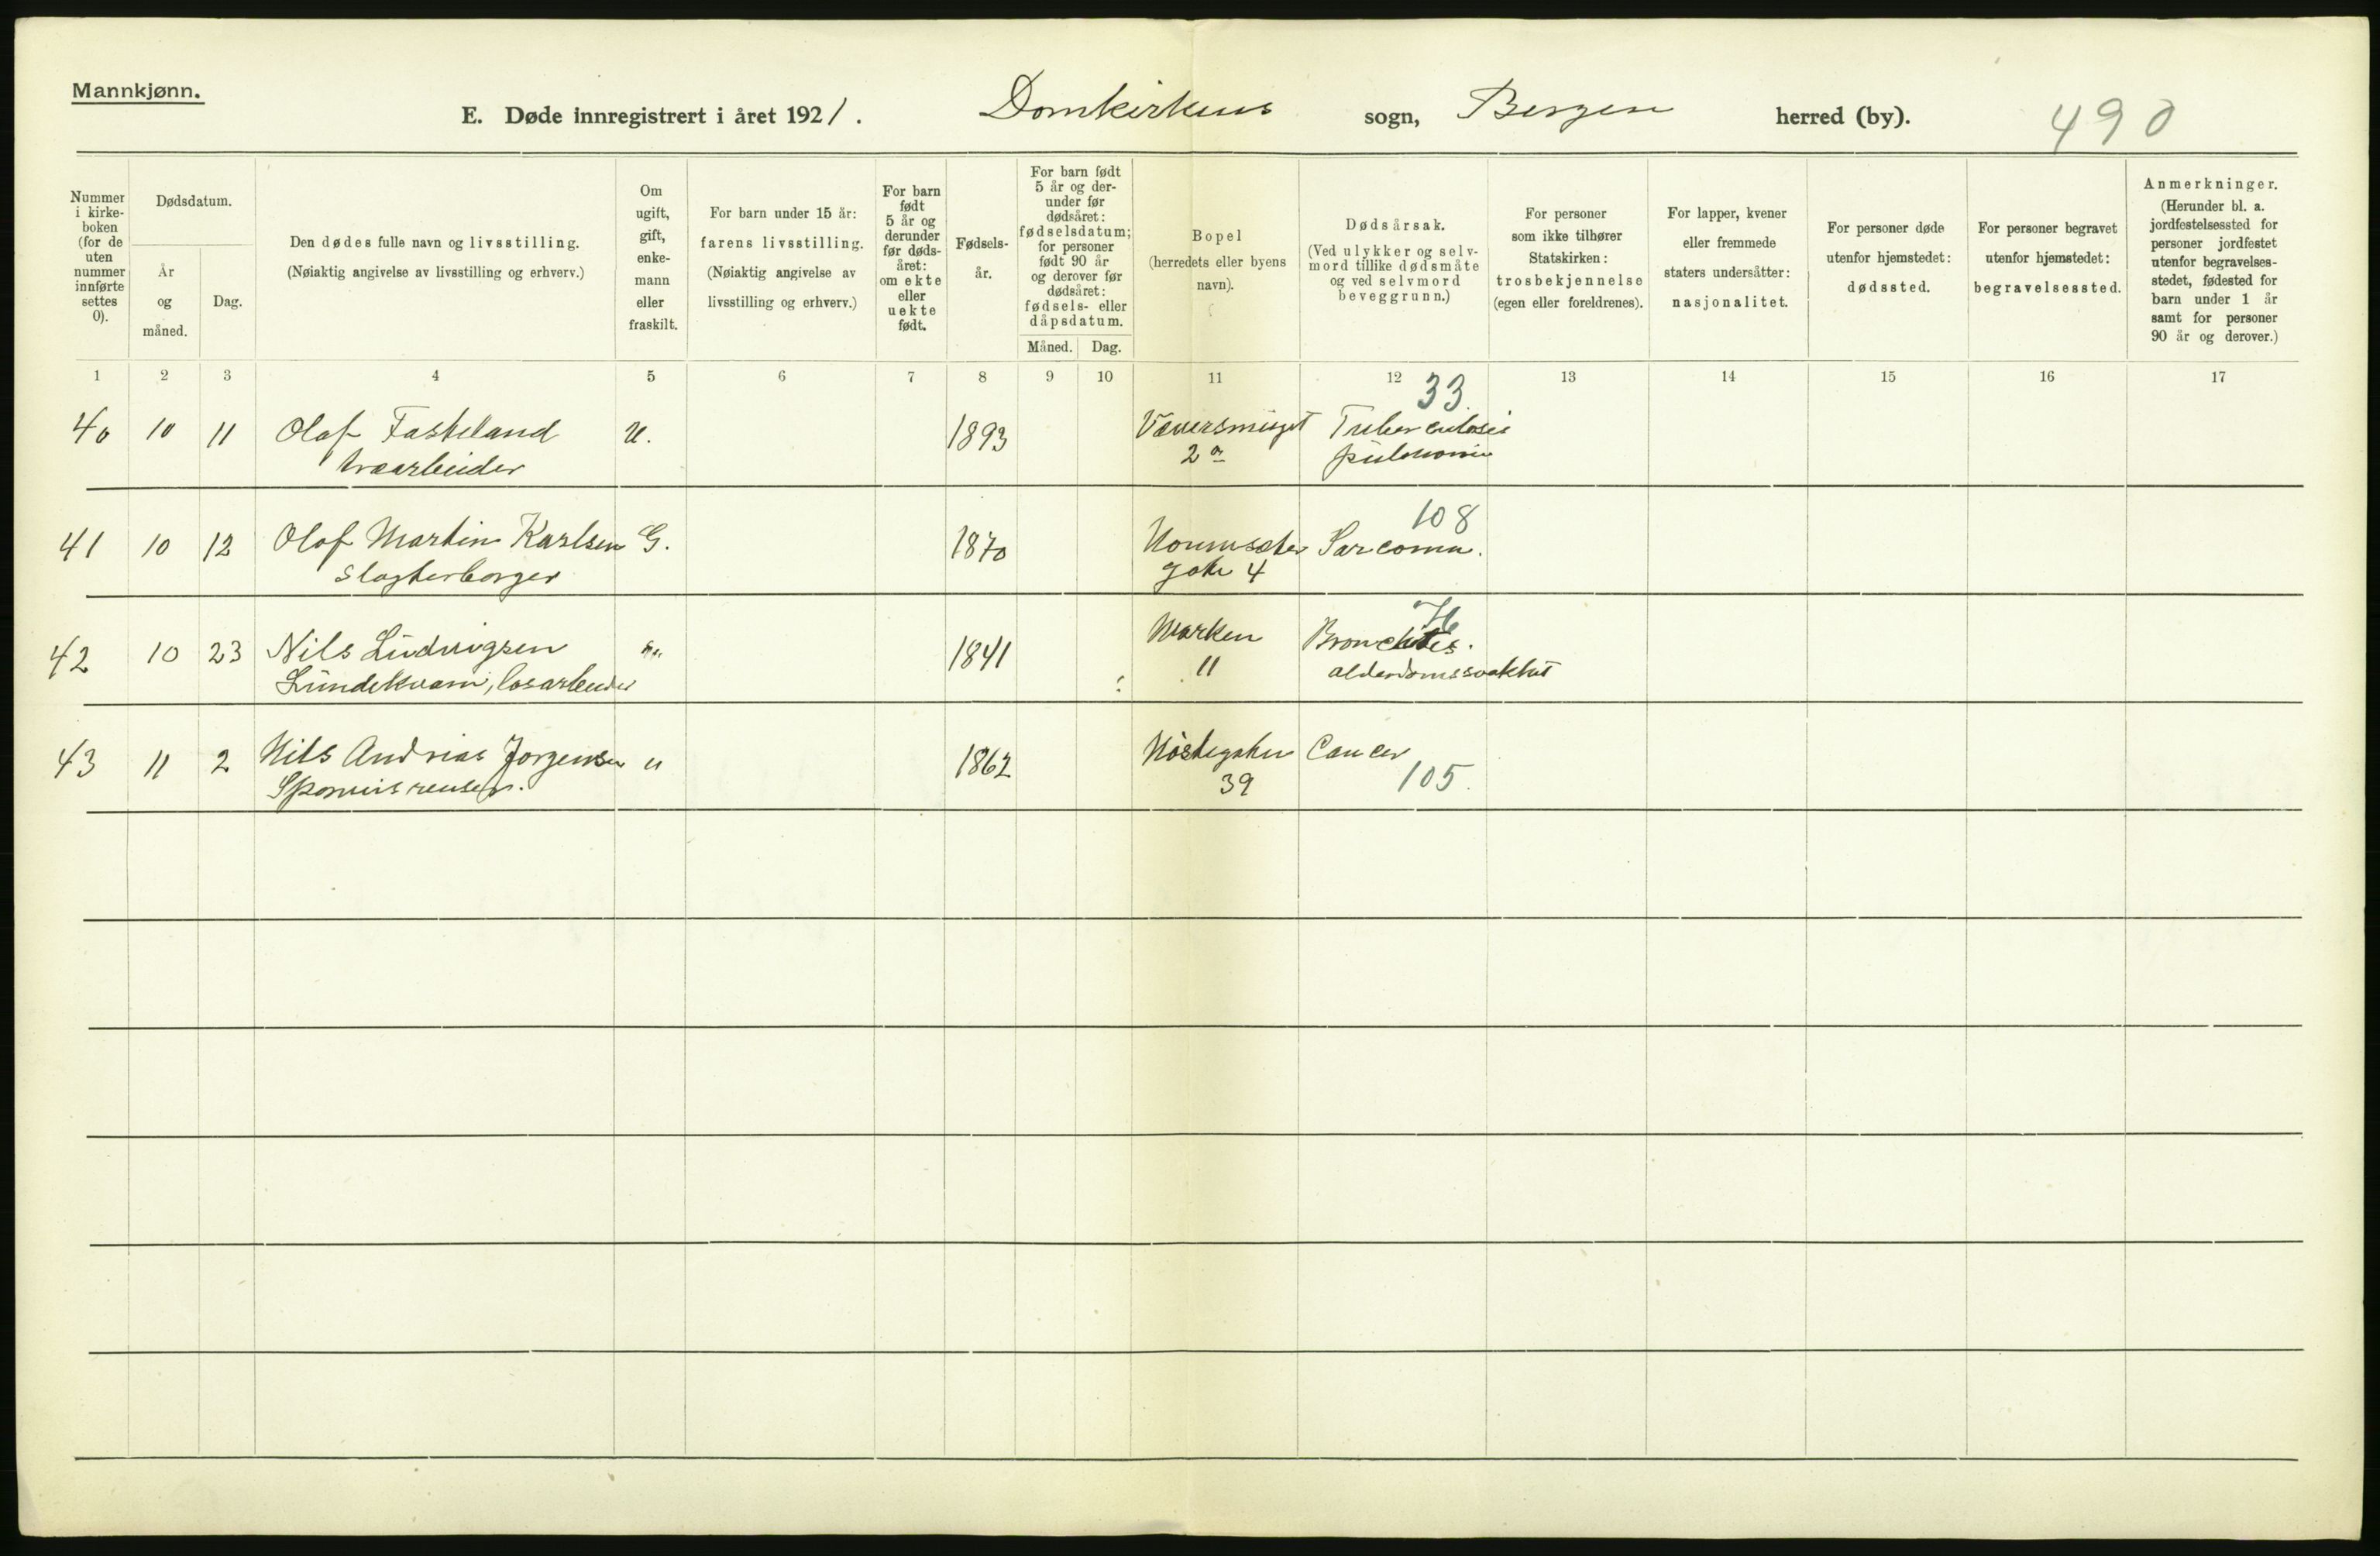 Mannkjønn.
E. Døde innregistrert i året 1921. Domkirkens sogn, Bergen herred (by). 490
Nummer
i kirke-
boken
(for de
uten
nummer
innførte
settes
0).
Dødsdatum.
År
og
måned.
Dag.
Den dødes fulle navn og livsstilling.
(Nøiaktig angivelse av livsstilling og erhverv.)
Om
ugift,
gift,
enke-
mann
eller
fraskilt.
For barn under 15 år:
farens livsstilling.
(Nøiaktig angivelse av
livsstilling og erhverv.)
For barn
født
5 år og
derunder
før døds-
året:
om ekte
eller
uekte
født.
Fødsels-
år.
For barn født
5 år og der-
under før
dødsåret:
fødselsdatum;
for personer
født 90 år
og derover før
dødsåret:
fødsels- eller
dåpsdatum.
Måned. Dag.
Bopel
(herredets eller byens
navn).
Dødsårsak.
(Ved ulykker og selv-
mord tillike dødsmåte
og ved selvmord
beveggrunn.)
For personer
som ikke tilhører
Statskirken:
trosbekjennelse
(egen eller foreldrenes).
For lapper, kvener
eller fremmede
staters undersåtter:
nasjonalitet.
For personer døde
utenfor hjemstedet:
dødssted.
For personer begravet
utenfor hjemstedet:
begravelsessted.
Anmerkninger.
(Herunder bl. a.
jordfestelsessted for
personer jordfestet
utenfor begravelses-
stedet, fødested for
barn under 1 år
samt for personer
90 år og derover.)
1 2 3 4 5 6 7 8 9 10 11 12 13 14 15 16 17
33
40 10 11 Olaf Fasteland U. 1893 Tuberculosis
træarbeider 2 a pulmonum
108
41 10 12 Olaf Martin Karlsen G. 1870 Sarcoma.
Slagterborger gate 4
76
42 10 23 Nils Ludvigsen " 1841 Marken Bronchitis.
Lundekvam, løsarbeider 11 alderdomssvakhet
43 11 2 Nils Andreas Jørgensen " 1862 Nøstegaten Cancer
39 105